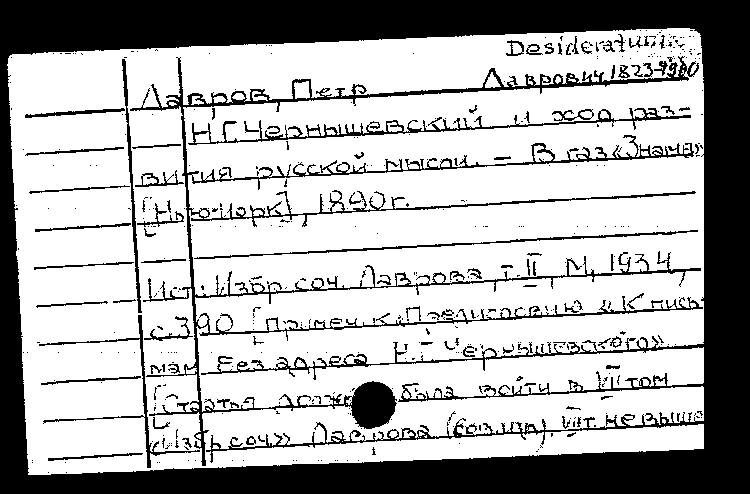 Desideratum
Лавров, Петр Лаврович, 1823-1900
Н.Г.Чернышевский и ход раз-
вития русской мысли. – В газ. «Знамя»
[Нью-Йорк], 1890г.
Ист.: Избр. соч. Лаврова, т. II, М, 1934,
с. 390 [Примеч. к «Предисловию «К пись-
мам без адреса Н.Г. Чернышевского»
[Статья должна была войти в VII том
«Избр соч» Лаврова VII т. не выше